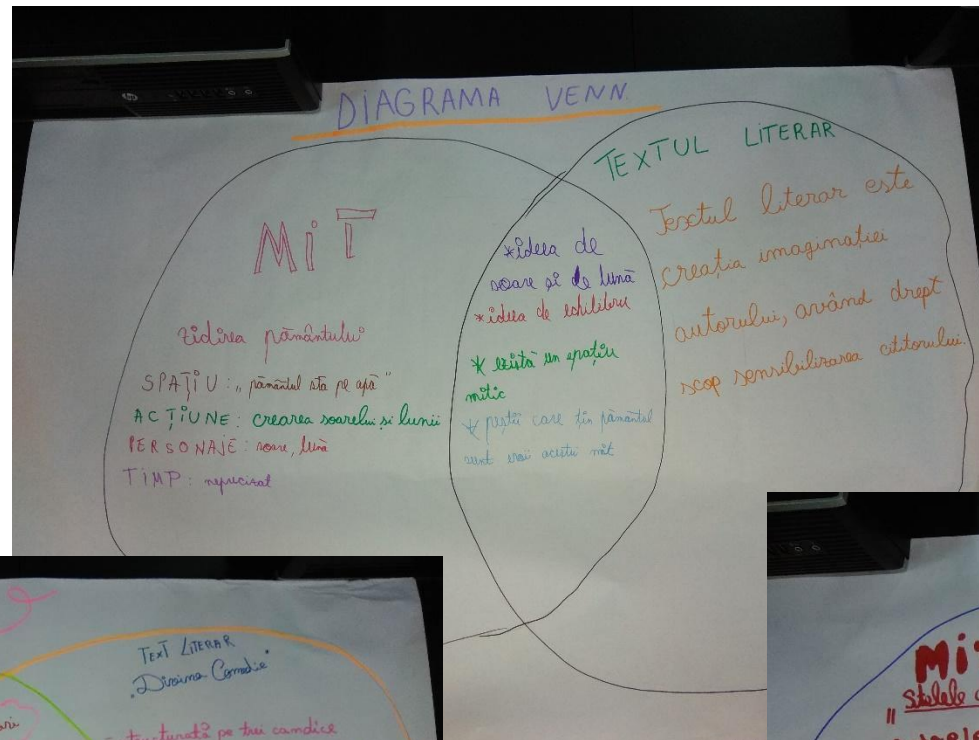 hp
DIAGRAMA VENN
MiT
zidirea pământului
SPAȚIU: „pământul stă pe apă"
ACȚIUNE: crearea soarelui și lunii
PERSONAJE: soare, lună
TIMP: neprecizat
*ideea de
soare și de lună
*ideea de echilibru
* există un spațiu
mitic
* peștii care țin pământul
sunt eroii acestui mit
TEXTUL LITERAR
Textul literar este
creația imaginației
autorului, având drept
scop sensibilizarea cititorului.
TEXT LITERAR
„Divina Comedie"
pe trei candice
Mi
"Stelele